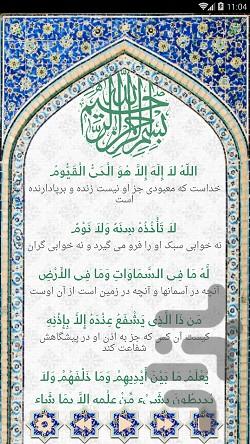 11:04
بسم الله الرحمن الرحیم
اللّهُ لاَ إِلَهَ إِلاَّ هُوَ الْحَيُّ الْقَيُّومُ
خداست که معبودی جز او نیست زنده و برپادارنده
است
لاَ تَأْخُذُهُ سِنَةٌ وَلاَ نَوْمٌ
نه خوابی سبک او را فرو می گیرد و نه خوابی گران
لَّهُ مَا فِي السَّمَاوَاتِ وَمَا فِي الأَرْضِ
آنچه در آسمانها و آنچه در زمین است از آن اوست
مَن ذَا الَّذِي يَشْفَعُ عِنْدَهُ إِلاَّ بِإِذْنِهِ
کیست آن کس که جز به اذن او در پیشگاهش
شفاعت کند
يَعْلَمُ مَا بَيْنَ أَيْدِيهِمْ وَمَا خَلْفَهُمْ وَلاَ
يُحِيطُونَ بِشَيْءٍ مِّنْ عِلْمِهِ إِلاَّ بِمَا شَاء